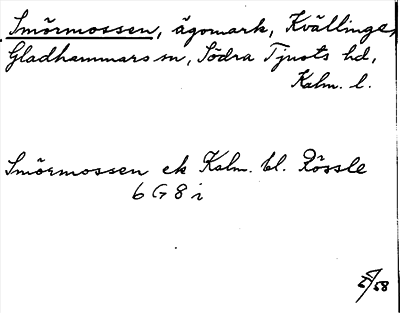 Smörmossen, ägomark, Kvällinge,
Gladhammars sn, Södra Tjusts hd,
Kalm. l.
Smörmossen ek Kalm. bl. Rössle
6 G 8 i